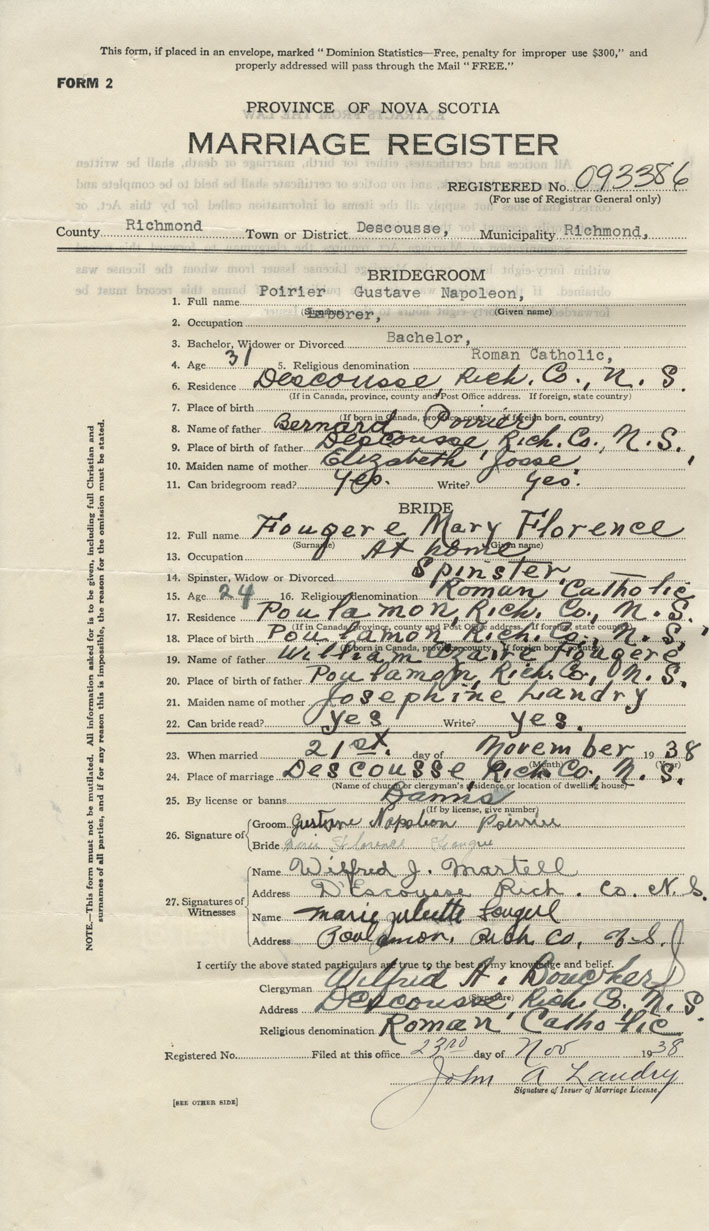 This form, if placed in an envelope, marked "Dominion Statistics—Free, penalty for improper use $300," and
properly addressed will pass through the Mail "FREE."
FORM 2
PROVINCE OF NOVA SCOTIA
MARRIAGE REGISTER
REGISTERED No. 093386
(For use of Registrar General only)
County Richmond Town or District Descousse, Municipality Richmond,
BRIDEGROOM
1. Full name Poirier Gustave Napoleon,
(Surname) (Given name)
2. Occupation Laborer,
3. Bachelor, Widower or Divorced Bachelor,
4. Age 31 5. Religious denomination Roman Catholic,
6. Residence Descousse, Rich. Co., N. S.
(If in Canada, province, county and Post Office address. If foreign, state country)
7. Place of birth
(If born in Canada, province, county. If foreign born, country)
8. Name of father Bernard Poirier
9. Place of birth of father Descousse, Rich. Co., N. S.
10. Maiden name of mother Elizabeth Josse
11. Can bridegroom read? Yes. Write? Yes.
BRIDE
12. Full name Fougere Mary Florence
(Surname) (Given name)
13. Occupation At home
14. Spinster, Widow or Divorced Spinster
15. Age 24 16. Religious denomination Roman Catholic
17. Residence Poulamon, Rich. Co., N. S.
(If in Canada, province, county and Post Office address. If foreign state country)
18. Place of birth Poulamon, Rich. Co., N. S.
(If born in Canada, province, county. If foreign born, country)
19. Name of father William Fougere
20. Place of birth of father Poulamon, Rich. Co., N. S.
21. Maiden name of mother Josephine Landry
22. Can bride read? Yes Write? Yes.
23. When married 21st. day of November 1938
(Month) (Year)
24. Place of marriage Descousse, Rich. Co., N. S.
(Name of church or clergyman's residence or location of dwelling house)
25. By license or banns Banns
(If by license, give number)
26. Signature of
Groom Gustave Napoleon Poirier
Bride Florence
27. Signatures of Witnesses
Name Wilfred J. Martell
Address D'Escousse Rich. Co. N. S.
Name Marie Juliette Fougere
Address Poulamon, Rich Co, N. S.
I certify the above stated particulars are true to the best of my knowledge and belief.
Clergyman Wilfred A. Boucher
(Signature)
Address Descousse, Rich. Co. N. S.
Religious denomination Roman Catholic
Registered No. Filed at this office 23rd day of Nov 1938
John A Landry
Signature of Issuer of Marriage License
[SEE OTHER SIDE]
NOTE.—This form must not be mutilated. All information asked for is to be given, including full Christian and
surnames of all parties, and if for any reason this is impossible, the reason for the omission must be stated.